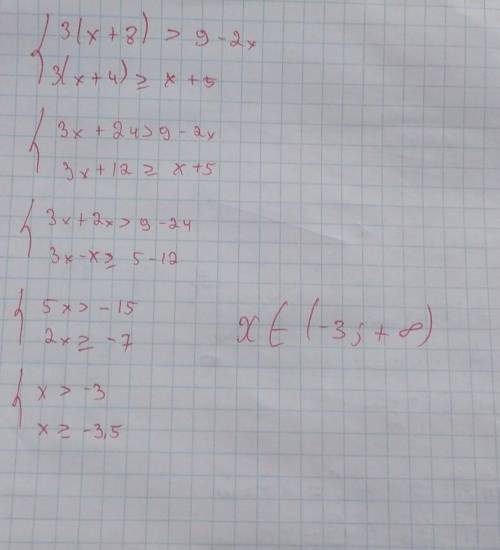 3(x + 8) > 9 - 2x
3(x + 4) ≥ x + 5
3x + 24 > 9 - 2x
3x + 12 ≥ x + 5
3x + 2x > 9 - 24
3x - x ≥ 5 - 12
5x > -15
2x ≥ -7
x ∈ (-3; +∞)
x > -3
x ≥ -3,5